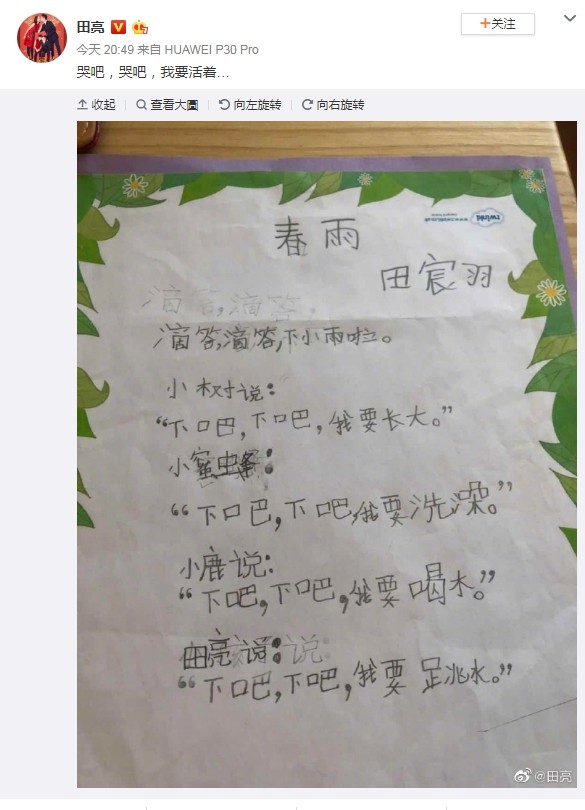 田亮
+关注
今天 20:49 来自 HUAWEI P30 Pro
哭吧，哭吧，我要活着...
收起 查看大圖 向左旋转 向右旋转
twinkl
春雨
田宸羽
滴答,滴答,
滴答,滴答,下小雨啦。
小树说：
“下吧,下吧,我要长大。”
小蜜蜂：
“下吧,下吧,我要洗澡。”
小鹿说：
“下吧,下吧,我要喝水。”
田亮说：说：
“下吧,下吧,我要跳水。”
@田亮